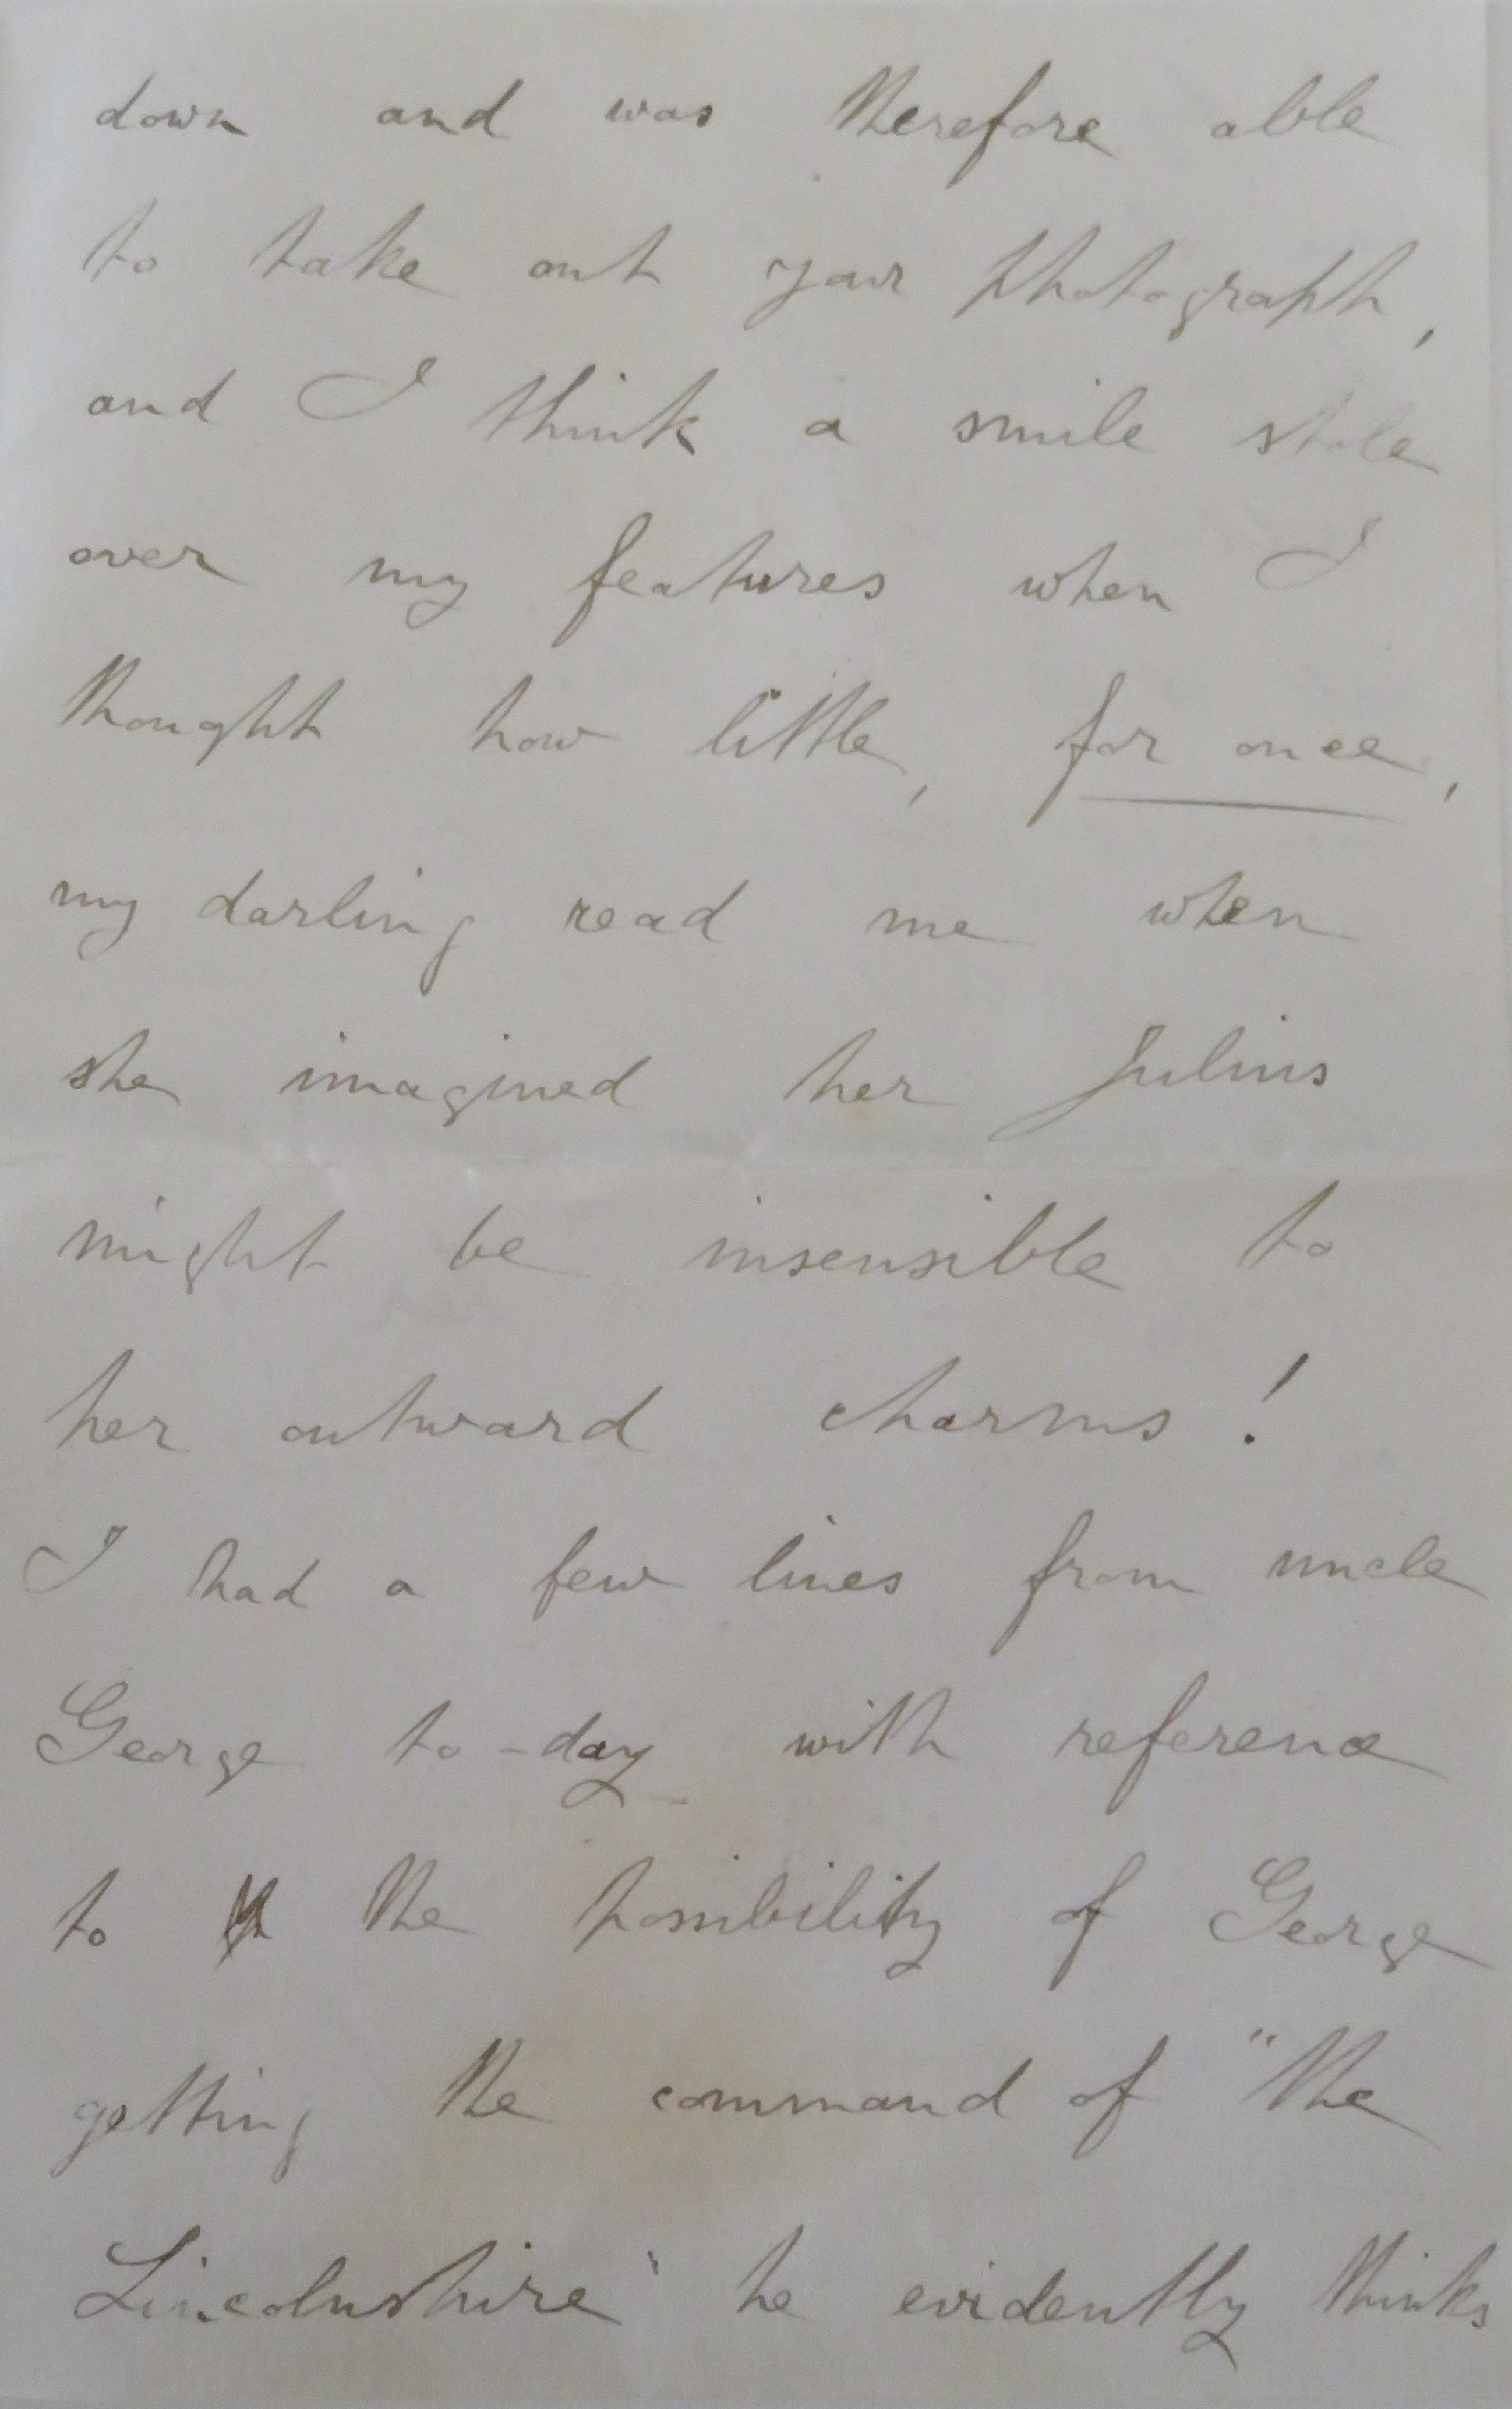 down and was therefore able
to take out your photograph,
and I think a smile stole
over my features when I
thought how little, for once,
my darling read me when
she imagined her Julius
might be insensible to
her outward charms!
I had a few lines from uncle
George to-day with reference
to the possibility of George
getting the command of "the
Lincolnshire" he evidently thinks